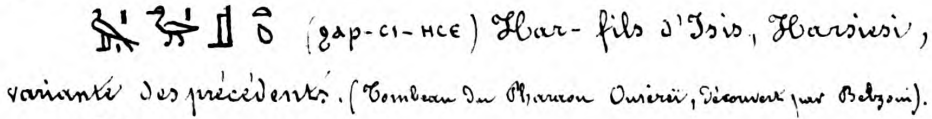 (ϩⲁⲣ-ⲥⲓ-ⲏⲥⲉ) Har-fils d'Isis, Harsiesi,
variante des précédents. (Tombeau du Pharaon Ousireï, découvert par Belzoni).